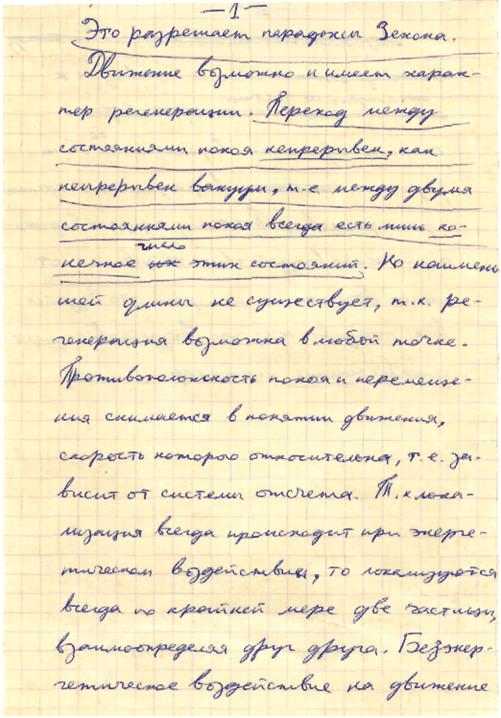 — 1 —
Это разрешает парадоксы Зенона.
Движение возможно и имеет харак-
тер регенерации. Переход между
состояниями покоя непрерывен, как
непрерывен вакуум, т.е. между двумя
состояниями покоя всегда есть лишь ко-
число
нечное их этих состояний. Но наимень
шей длины не существует, т.к. ре-
генерация возможна в любой точке.
Противоположность покоя и перемеще-
ния снимается в понятии движения,
скорость которого относительна, т.е. за-
висит от системы отсчета. Т.к лока-
лизация всегда происходит при энерге-
тическом воздействии, то локализуются
всегда по крайней мере две частицы,
взаимоопределяя друг друга. Безэнер-
гетическое воздействие на движение